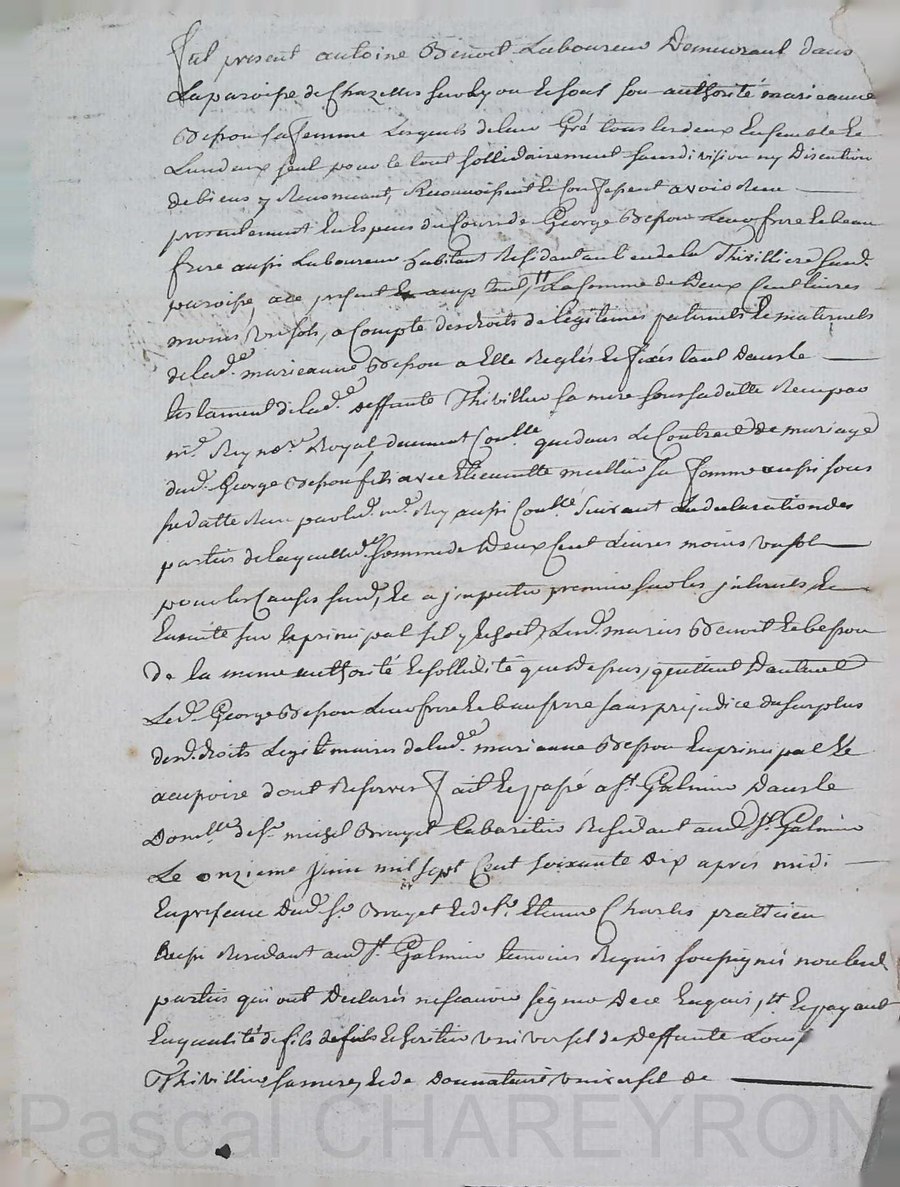 Fut present antoine Benoit Laboureur Demeurant dans
La paroisse de Chazelles sur Lyon et sous son authorité marieanne
Besson sa femme Lesquels de leur Gré tous les deux Ensemble Et
L'un deux seul pour le tout sollidairement sans division ny Discution
de biens y Renonceant, Reconnoissent et Confessent avoir Receu
presentement En Espece du Cours de George Besson Leur frere Et beau
frere aussi Laboureur habitant Residant au lieu de la Thivilliere susd.
paroisse, ace present acceptant, La somme de Deux Cent livres
moins un sols, a Compte des droits de légitimes paternels Et maternels
de lad.e marieanne Besson a Elle Reglés Et fixés tant Dans le
testament de lad.e deffunte Thivillier sa mere sous sa datte Receu par
m.e Rey no.re Royal, duement Con.llé que dans Le Contract de mariage
dud. George Besson fils avec Etiennette meillier sa femme aussi sous
sa datte Receu par led. m.e Rey aussi Con.llé Suivant La declaration des
parties de laquelle d.e somme de Deux Cent Livres moins un sol
pour les Causes susd., Et a jmputer premier sur les jnterets Et
Ensuite sur le principal sil y Echoit, Lesd. mariés Benoit Et besson
de la meme authorité Et sollidité que Dessus, quittent D'autant
Led. George Besson Leur frere Et beau frere sans prejudice du surplus
desd. droits Legitimaires de lad.e marieanne Besson En principal Et
accessoire dont Reserves fait Et passé a St. Galmier Dans le
Domicille de S.r michel Bruyet Cabaretier Residant aud. St. Galmier
Le onzieme juin mil sept Cent soixante dix apres midi
En presence Dud. S.r Bruyet Et de S.r Etienne Charles pratticien
aussi Residant aud. St. Galmier temoins Requis soussignés non les
parties qui ont Declarés ne scavoir signer De ce Enquis, Et Et payant
En qualité de fils Et heritier universel de deffunte
Thivillier sa mere, Et de Donnataire universel de
Pascal CHAREYRON